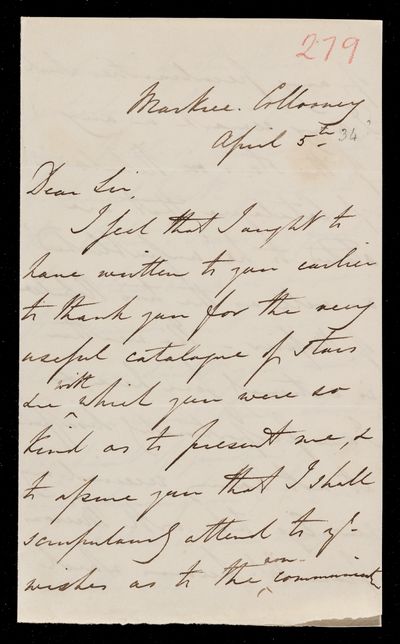 279
Markree. Collooney
April 5th 34?
Dear Sir,
I feel that I ought to
have written to you earlier
to thank you for the very
useful catalogue of stars
with
&c which you were so
kind as to present me, &
to assure you that I shall
scrupulously attend to yr
wishes as to the
non-
communicat